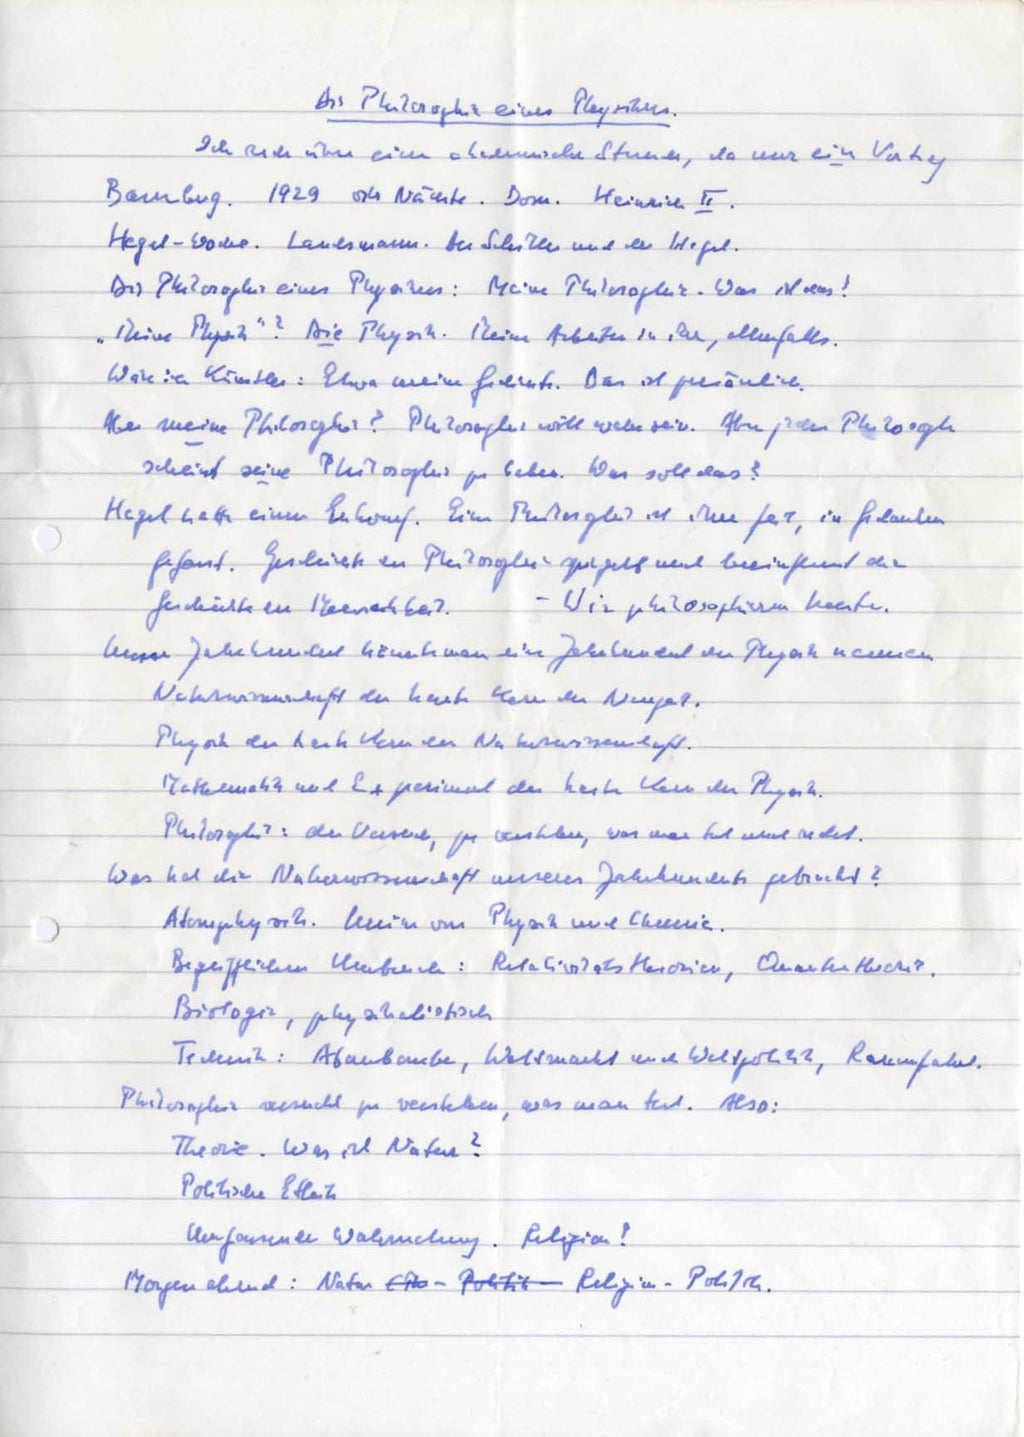 Die Philosophie eines Physikers.
Ich rede über eine akademische Stunde, da nur ein Vortrag
Bamberg. 1929 oder Nächte. Dom. Heinrich II.
Hegel-Woche. Landsmann. Der Schiller und der Hegel.
Die Philosophie eines Physikers: Meine Philosophie. Was ist das?
„Meine Physik"? Die Physik. Meine Arbeiten in ihr, allenfalls.
Wäre ich Künstler: Etwa meine Gedichte. Das ist persönlich.
Aber meine Philosophie? Philosophie will wahr sein. Aber jeder Philosoph
scheint seine Philosophie zu haben. Was soll das?
Hegel hatte einen Entwurf. Eine Philosophie ist ihre Zeit, in Gedanken
gefasst. Geschichte der Philosophie spiegelt und beeinflusst die
Geschichte der Menschheit. - Wir philosophieren heute.
Unser Jahrhundert könnte man ein Jahrhundert der Physik nennen
Naturwissenschaft der harte Kern der Neuzeit.
Physik der harte Kern der Naturwissenschaft.
Mathematik und Experiment der harte Kern der Physik.
Philosophie: der Versuch, zu verstehen, was man tut und redet.
Was hat die Naturwissenschaft unseres Jahrhunderts gebracht?
Atomphysik. Union von Physik und Chemie.
Begrifflicher Umbruch: Relativitätstheorien, Quantentheorie.
Biologie, physikalistisch
Technik: Atombombe, Weltmacht und Weltpolitik, Raumfahrt.
Philosophie versucht zu verstehen, was man tut. Also:
Theorie. Was ist Natur?
Politische Ethik
Umfassende Wahrnehmung. Religion?
Morgen abend: Natur - Politik - Religion - Politik.